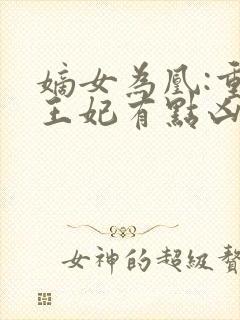 嫡女為凰:重
王妃有點凶
女神的超級贅